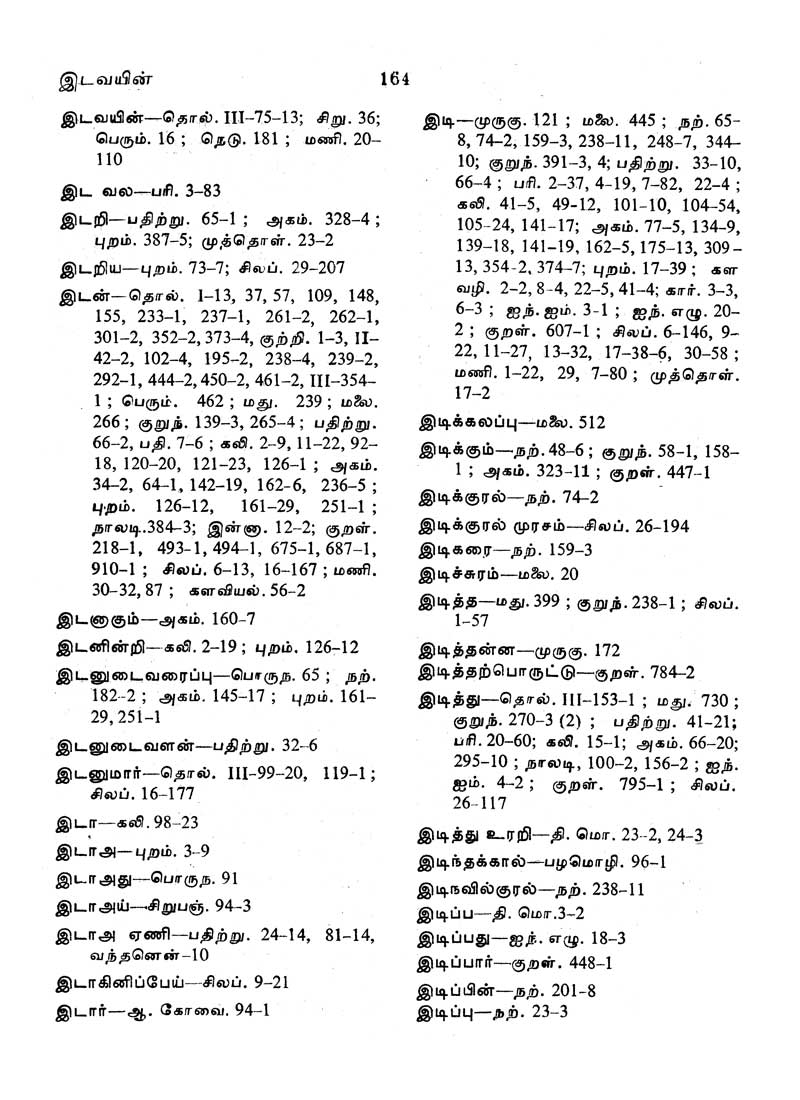 இடவயின் 164
இடவயின்—தொல். III-75-13; சிறு. 36;
பெரும். 16 ; நெடு. 181 ; மணி. 20–
110
இட வல—பரி. 3-83
இடறி—பதிற்று. 65-1 ; அகம். 328-4 ;
புறம். 387-5; முத்தொள். 23-2
இடறிய—புறம். 73-7; சிலப். 29-207
இடன்—தொல். I-13, 37, 57, 109, 148,
155, 233-1, 237-1, 261-2, 262-1,
301-2, 352-2, 373-4, குற்றி. 1-3, II-
42-2, 102-4, 195-2, 238-4, 239-2,
292-1, 444-2, 450-2, 461-2, III-354-
1 ; பெரும். 462 ; மது. 239 ; மலை.
266 ; குறுந். 139-3, 265-4 ; பதிற்று.
66-2, பதி. 7-6 ; கலி. 2-9, 11-22, 92-
18, 120-20, 121-23, 126-1 ; அகம்.
34-2, 64-1, 142-19, 162-6, 236-5 ;
புறம். 126-12, 161-29, 251-1 ;
நாலடி.384-3; இன்னா. 12-2; குறள்.
218-1, 493-1, 494-1, 675-1, 687-1,
910-1 ; சிலப். 6-13, 16-167 ; மணி.
30-32, 87 ; களவியல். 56-2
இடனாகும்—அகம். 160-7
இடனின்றி—கலி. 2-19 ; புறம். 126-12
இடனுடைவரைப்பு—பொருந. 65 ; நற்.
182-2 ; அகம். 145-17 ; புறம். 161–
29, 251-1
இடனுடைவளன்—பதிற்று. 32-6
இடனுமார்—தொல். III-99-20, 119-1 ;
சிலப். 16-177
இடா—கலி. 98-23
இடாஅ—புறம். 3-9
இடாஅது—பொருந. 91
இடாஅய்—சிறுபஞ். 94-3
இடாஅ ஏணி—பதிற்று. 24-14, 81-14,
வந்தனென்-10
இடாகினிப்பேய்—சிலப். 9-21
இடார்—ஆ. கோவை. 94-1
இடி—முருகு. 121 ; மலை. 445 ; நற். 65-
8, 74-2, 159-3, 238-11, 248-7, 344-
10; குறுந். 391-3, 4; பதிற்று. 33-10,
66-4 ; பரி. 2-37, 4-19, 7-82, 22-4 ;
கலி. 41-5, 49-12, 101-10, 104-54,
105-24, 141-17; அகம். 77-5, 134-9,
139-18, 141-19, 162-5, 175-13, 309–
13, 354-2, 374-7; புறம். 17-39 ; கள
வழி. 2-2, 8-4, 22-5, 41-4; கார். 3-3,
6-3 ; ஐந். ஐம். 3-1 ; ஐந். எழு. 20-
2 ; குறள். 607-1 ; சிலப். 6-146, 9-
22, 11-27, 13-32, 17-38-6, 30-58 ;
மணி. 1-22, 29, 7-80 ; முத்தொள்.
17-2
இடிக்கலப்பு—மலை. 512
இடிக்கும்—நற். 48-6 ; குறுந். 58-1, 158-
1 ; அகம். 323-11 ; குறள். 447-1
இடிக்குரல்—நற். 74-2
இடிக்குரல் முரசம்—சிலப். 26-194
இடிகரை—நற். 159-3
இடிச்சுரம்—மலை. 20
இடித்த—மது. 399 ; குறுந். 238-1 ; சிலப்.
1-57
இடித்தன்ன—முருகு. 172
இடித்தற்பொருட்டு—குறள். 784-2
இடித்து—தொல். III-153-1 ; மது. 730 ;
குறுந். 270-3 (2) ; பதிற்று. 41-21;
பரி. 20-60; கலி. 15-1; அகம். 66-20;
295-10 ; நாலடி, 100-2, 156-2 ; ஐந்.
ஐம். 4-2 ; குறள். 795-1 ; சிலப்.
26-117
இடித்து உரறி—தி. மொ. 23-2, 24-3
இடிந்தக்கால்—பழமொழி. 96-1
இடிநவில்குரல்—நற். 238-11
இடிப்ப—தி. மொ.3-2
இடிப்பது—ஐந். எழு. 18-3
இடிப்பார்—குறள். 448-1
இடிப்பின்—நற். 201-8
இடிப்பு—நற். 23-3